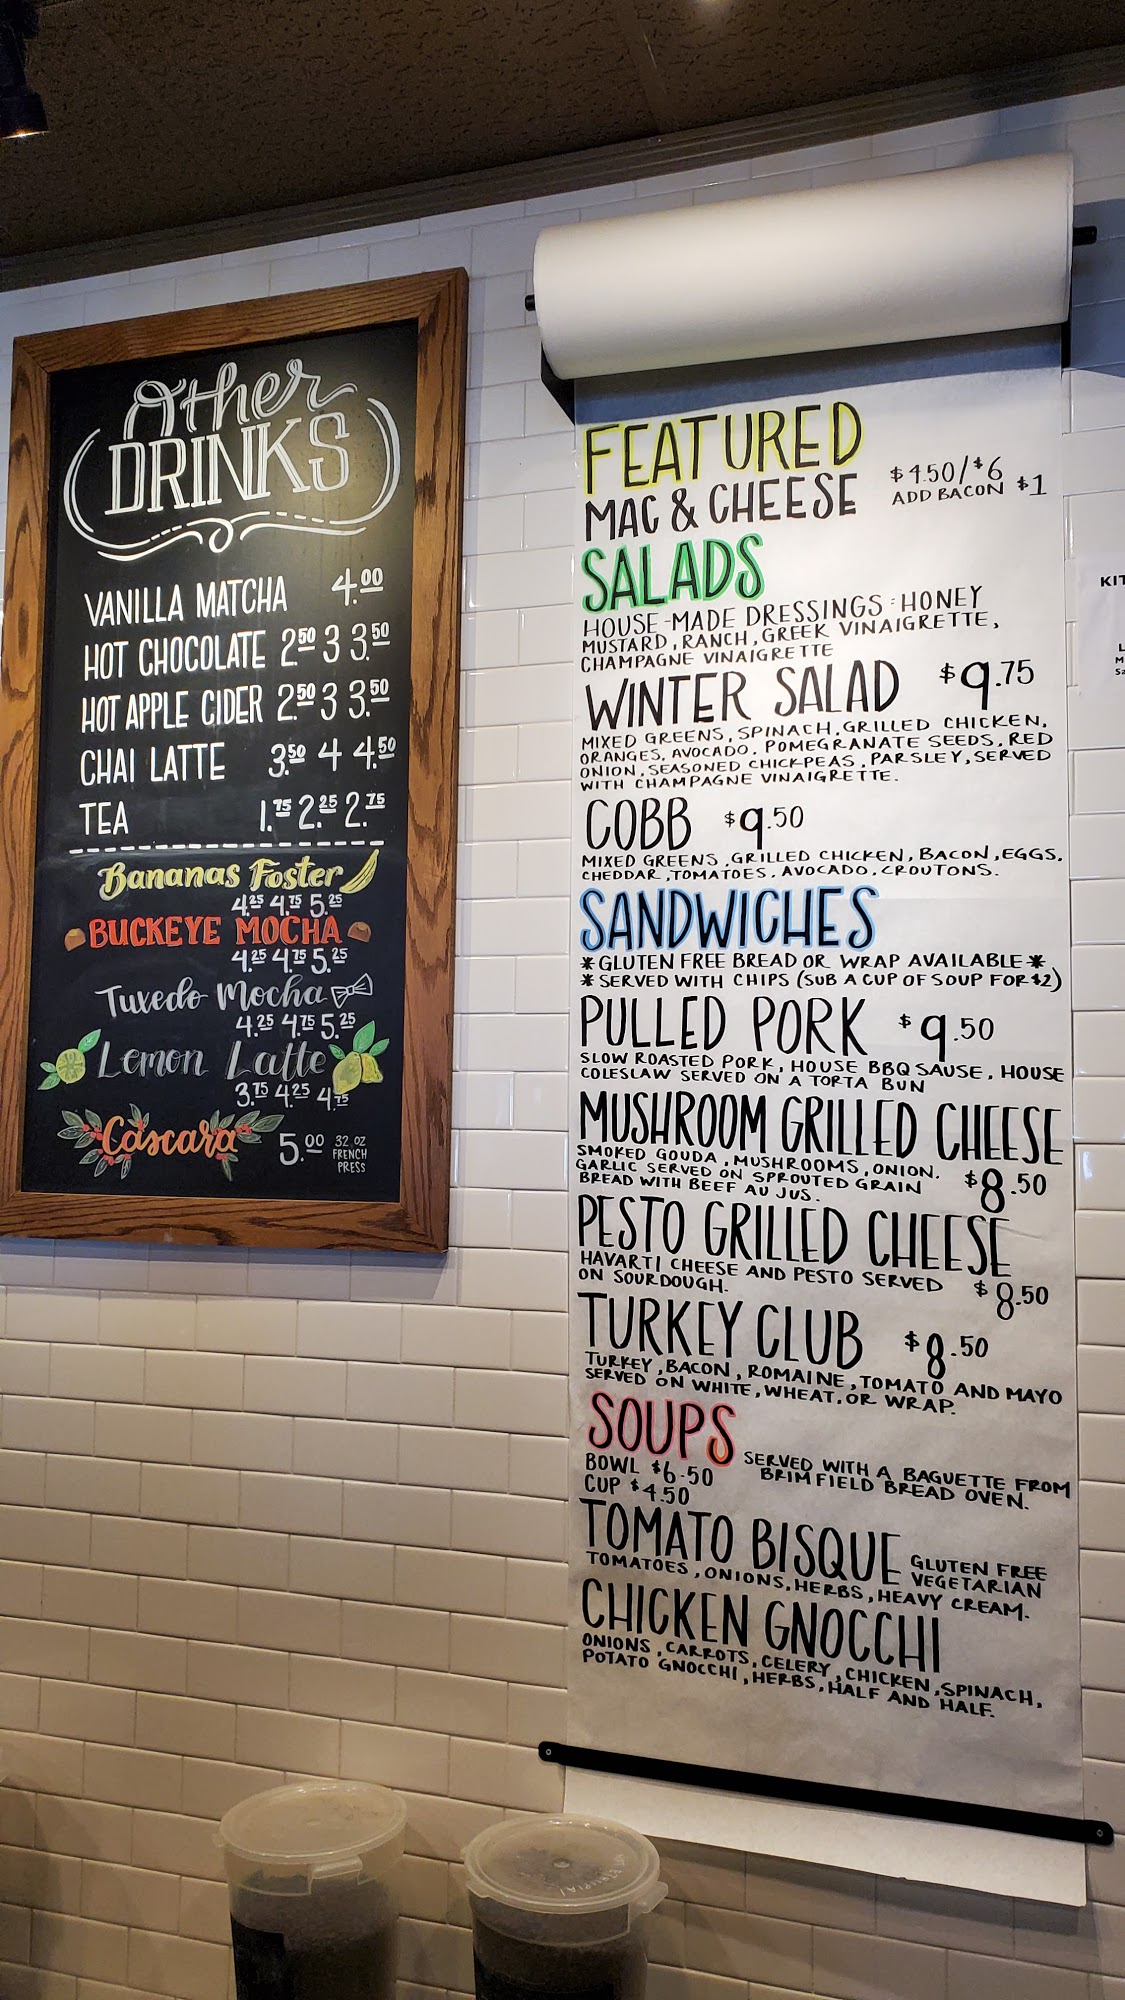 Other
DRINKS
VANILLA MATCHA 4.00
HOT CHOCOLATE 2.50 3 3.50
HOT APPLE CIDER 2.50 3 3.50
CHAI LATTE 3.50 4 4.50
TEA 1.75 2.25 2.75
Bananas Foster
4.25 4.75 5.25
BUCKEYE MOCHA
4.25 4.75 5.25
Tuxedo Mocha
4.25 4.75 5.25
Lemon Latte
3.75 4.25 4.75
Cascara 5.00 32 OZ
FRENCH
PRESS
FEATURED
MAC & CHEESE $4.50/$6
ADD BACON $1
SALADS
HOUSE-MADE DRESSINGS: HONEY
MUSTARD, RANCH, GREEK VINAIGRETTE,
CHAMPAGNE VINAIGRETTE
WINTER SALAD $9.75
MIXED GREENS, SPINACH, GRILLED CHICKEN,
ORANGES, AVOCADO, POMEGRANATE SEEDS, RED
ONION, SEASONED CHICKPEAS, PARSLEY, SERVED
WITH CHAMPAGNE VINAIGRETTE.
COBB $9.50
MIXED GREENS, GRILLED CHICKEN, BACON, EGGS,
CHEDDAR, TOMATOES, AVOCADO, CROUTONS.
SANDWICHES
*GLUTEN FREE BREAD OR WRAP AVAILABLE*
*SERVED WITH CHIPS (SUB A CUP OF SOUP FOR $2)
PULLED PORK $9.50
SLOW ROASTED PORK, HOUSE BBQ SAUSE, HOUSE
COLESLAW SERVED ON A TORTA BUN
MUSHROOM GRILLED CHEESE
SMOKED GOUDA, MUSHROOMS, ONION,
GARLIC SERVED ON SPROUTED GRAIN $8.50
BREAD WITH BEEF AU JUS.
PESTO GRILLED CHEESE
HAVARTI CHEESE AND PESTO SERVED $8.50
ON SOURDOUGH.
TURKEY CLUB $8.50
TURKEY, BACON, ROMAINE, TOMATO AND MAYO
SERVED ON WHITE, WHEAT, OR WRAP.
SOUPS
BOWL $6.50 SERVED WITH A BAGUETTE FROM
CUP $4.50 BRIMFIELD BREAD OVEN.
TOMATO BISQUE GLUTEN FREE
VEGETARIAN
TOMATOES, ONIONS, HERBS, HEAVY CREAM.
CHICKEN GNOCCHI
ONIONS, CARROTS, CELERY, CHICKEN, SPINACH,
POTATO GNOCCHI, HERBS, HALF AND HALF.